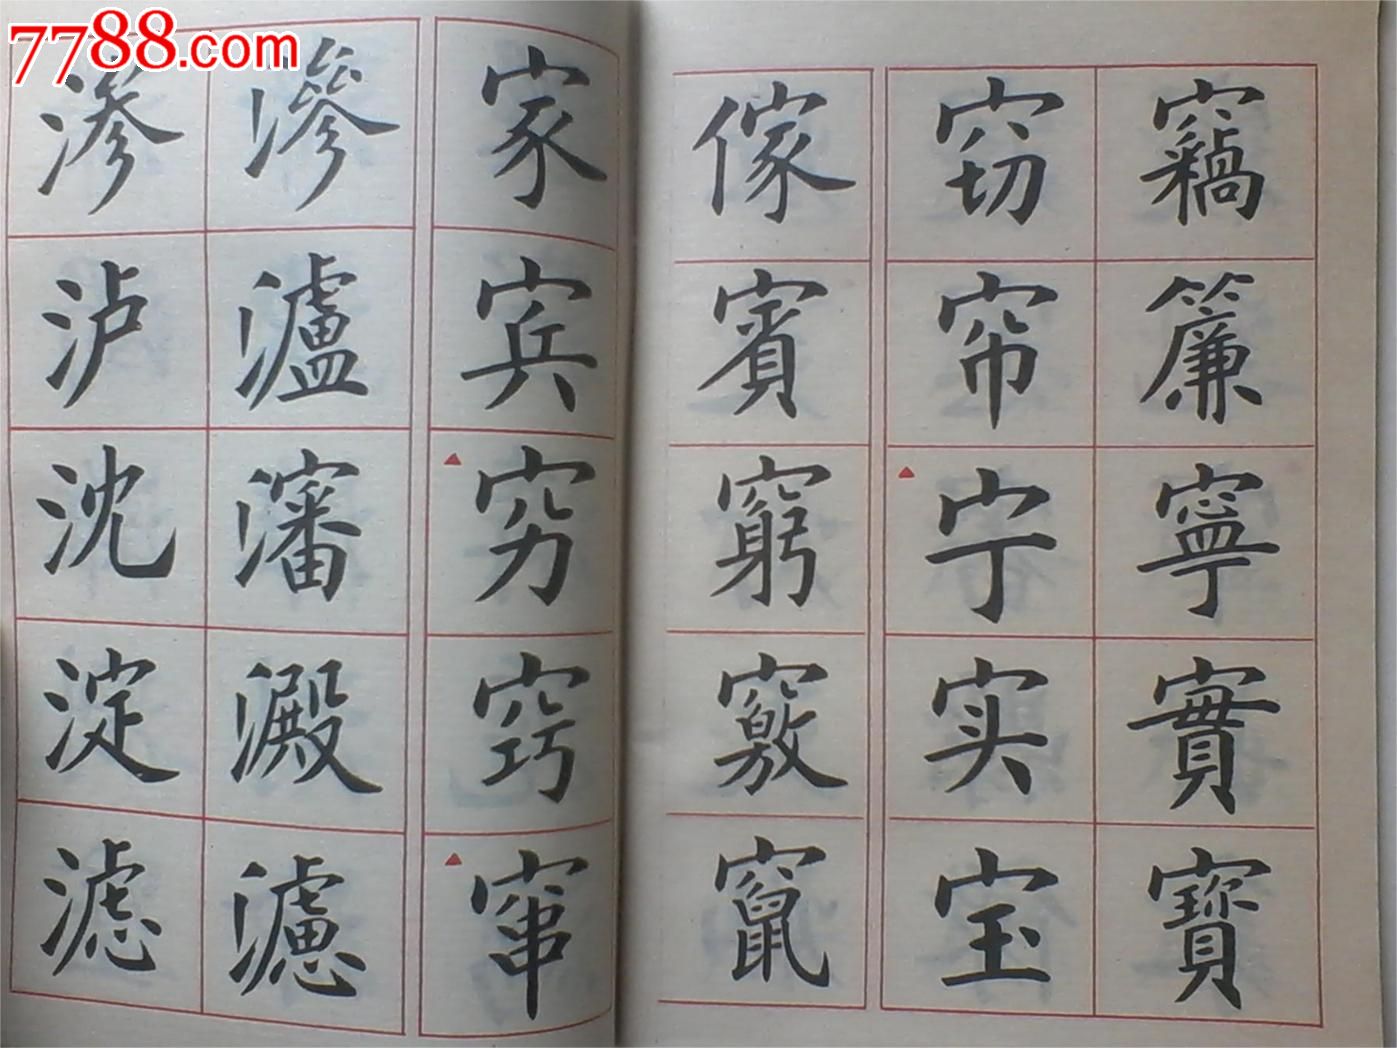 7788.com
渗 滲 家 傢 窃 竊
泸 瀘 宾 賓 帘 簾
沈 瀋 穷 窮 宁 寧
淀 澱 窍 竅 实 實
滤 濾 窜 竄 宝 寶